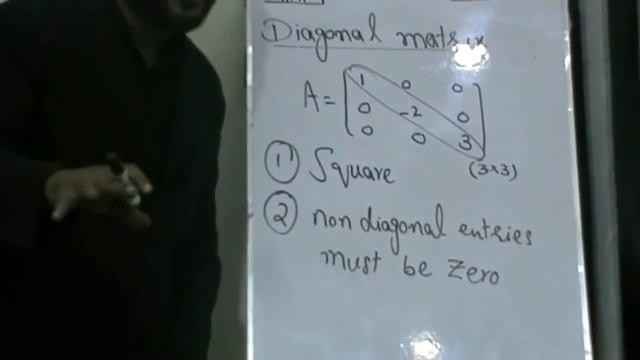 Diagonal matrix
A = [ 1 0 0
0 -2 0
0 0 3 ]
(3×3)
① Square
② non diagonal entries
must be zero